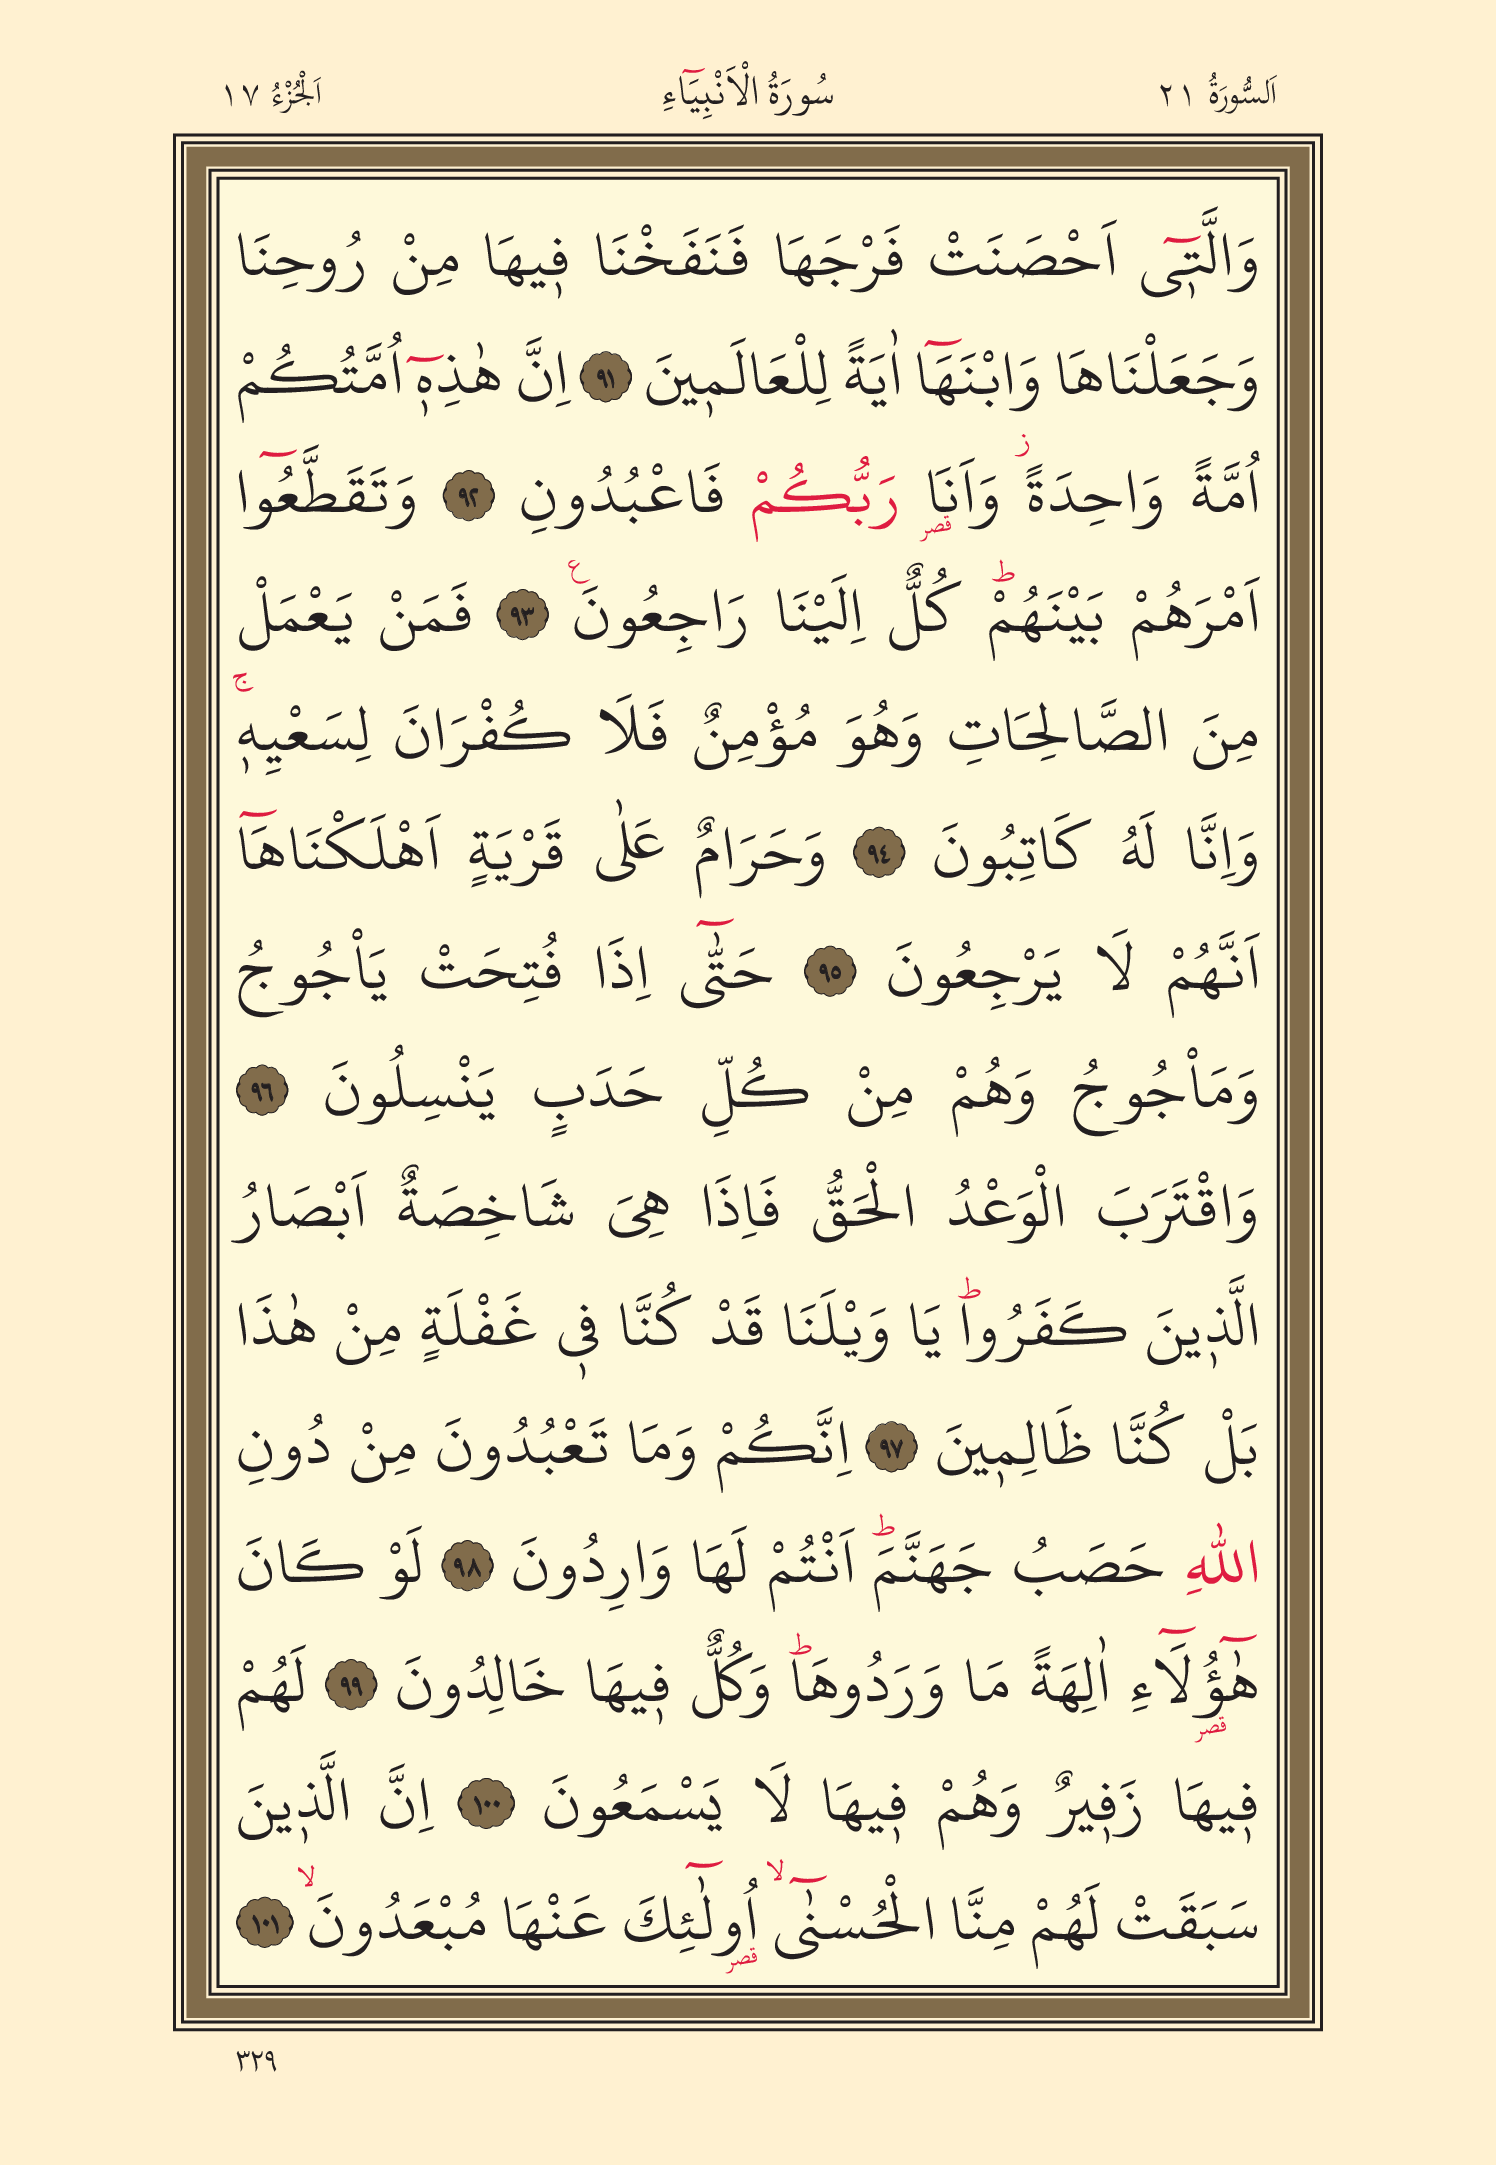 اَلسُّورَةُ ٢١ سُورَةُ الْاَنْبِيَٓاءِ اَلْجُزْءُ ١٧
وَالَّت۪ٓي اَحْصَنَتْ فَرْجَهَا فَنَفَخْنَا ف۪يهَا مِنْ رُوحِنَا
وَجَعَلْنَاهَا وَابْنَهَٓا اٰيَةً لِلْعَالَم۪ينَ ﴿٩١﴾ اِنَّ هٰذِه۪ٓ اُمَّتُكُمْ
اُمَّةً وَاحِدَةًۘ ز وَاَنَا۬ قصر رَبُّكُمْ فَاعْبُدُونِ ﴿٩٢﴾ وَتَقَطَّعُٓوا
اَمْرَهُمْ بَيْنَهُمْ ط كُلٌّ اِلَيْنَا رَاجِعُونَ ع ﴿٩٣﴾ فَمَنْ يَعْمَلْ
مِنَ الصَّالِحَاتِ وَهُوَ مُؤْمِنٌ فَلَا كُفْرَانَ لِسَعْيِه۪ ج
وَاِنَّا لَهُ كَاتِبُونَ ﴿٩٤﴾ وَحَرَامٌ عَلٰى قَرْيَةٍ اَهْلَكْنَاهَٓا
اَنَّهُمْ لَا يَرْجِعُونَ ﴿٩٥﴾ حَتّٰٓى اِذَا فُتِحَتْ يَأْجُوجُ
وَمَأْجُوجُ وَهُمْ مِنْ كُلِّ حَدَبٍ يَنْسِلُونَ ﴿٩٦﴾
وَاقْتَرَبَ الْوَعْدُ الْحَقُّ فَاِذَا هِيَ شَاخِصَةٌ اَبْصَارُ
الَّذ۪ينَ كَفَرُوا ط يَا وَيْلَنَا قَدْ كُنَّا ف۪ي غَفْلَةٍ مِنْ هٰذَا
بَلْ كُنَّا ظَالِم۪ينَ ﴿٩٧﴾ اِنَّكُمْ وَمَا تَعْبُدُونَ مِنْ دُونِ
اللّٰهِ حَصَبُ جَهَنَّمَ ط اَنْتُمْ لَهَا وَارِدُونَ ﴿٩٨﴾ لَوْ كَانَ
هٰٓؤُ۬لَٓاءِ قصر اٰلِهَةً مَا وَرَدُوهَا ط وَكُلٌّ ف۪يهَا خَالِدُونَ ﴿٩٩﴾ لَهُمْ
ف۪يهَا زَف۪يرٌ وَهُمْ ف۪يهَا لَا يَسْمَعُونَ ﴿١٠٠﴾ اِنَّ الَّذ۪ينَ
سَبَقَتْ لَهُمْ مِنَّا الْحُسْنٰٓى لا اُو۬لٰٓئِكَ قصر عَنْهَا مُبْعَدُونَ لا ﴿١٠١﴾
٣٢٩